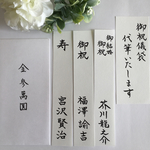 御祝儀袋
代筆いたします
御結婚
御祝
芥川龍之介
御祝
福澤諭吉
寿
宮沢賢治
金参萬圓